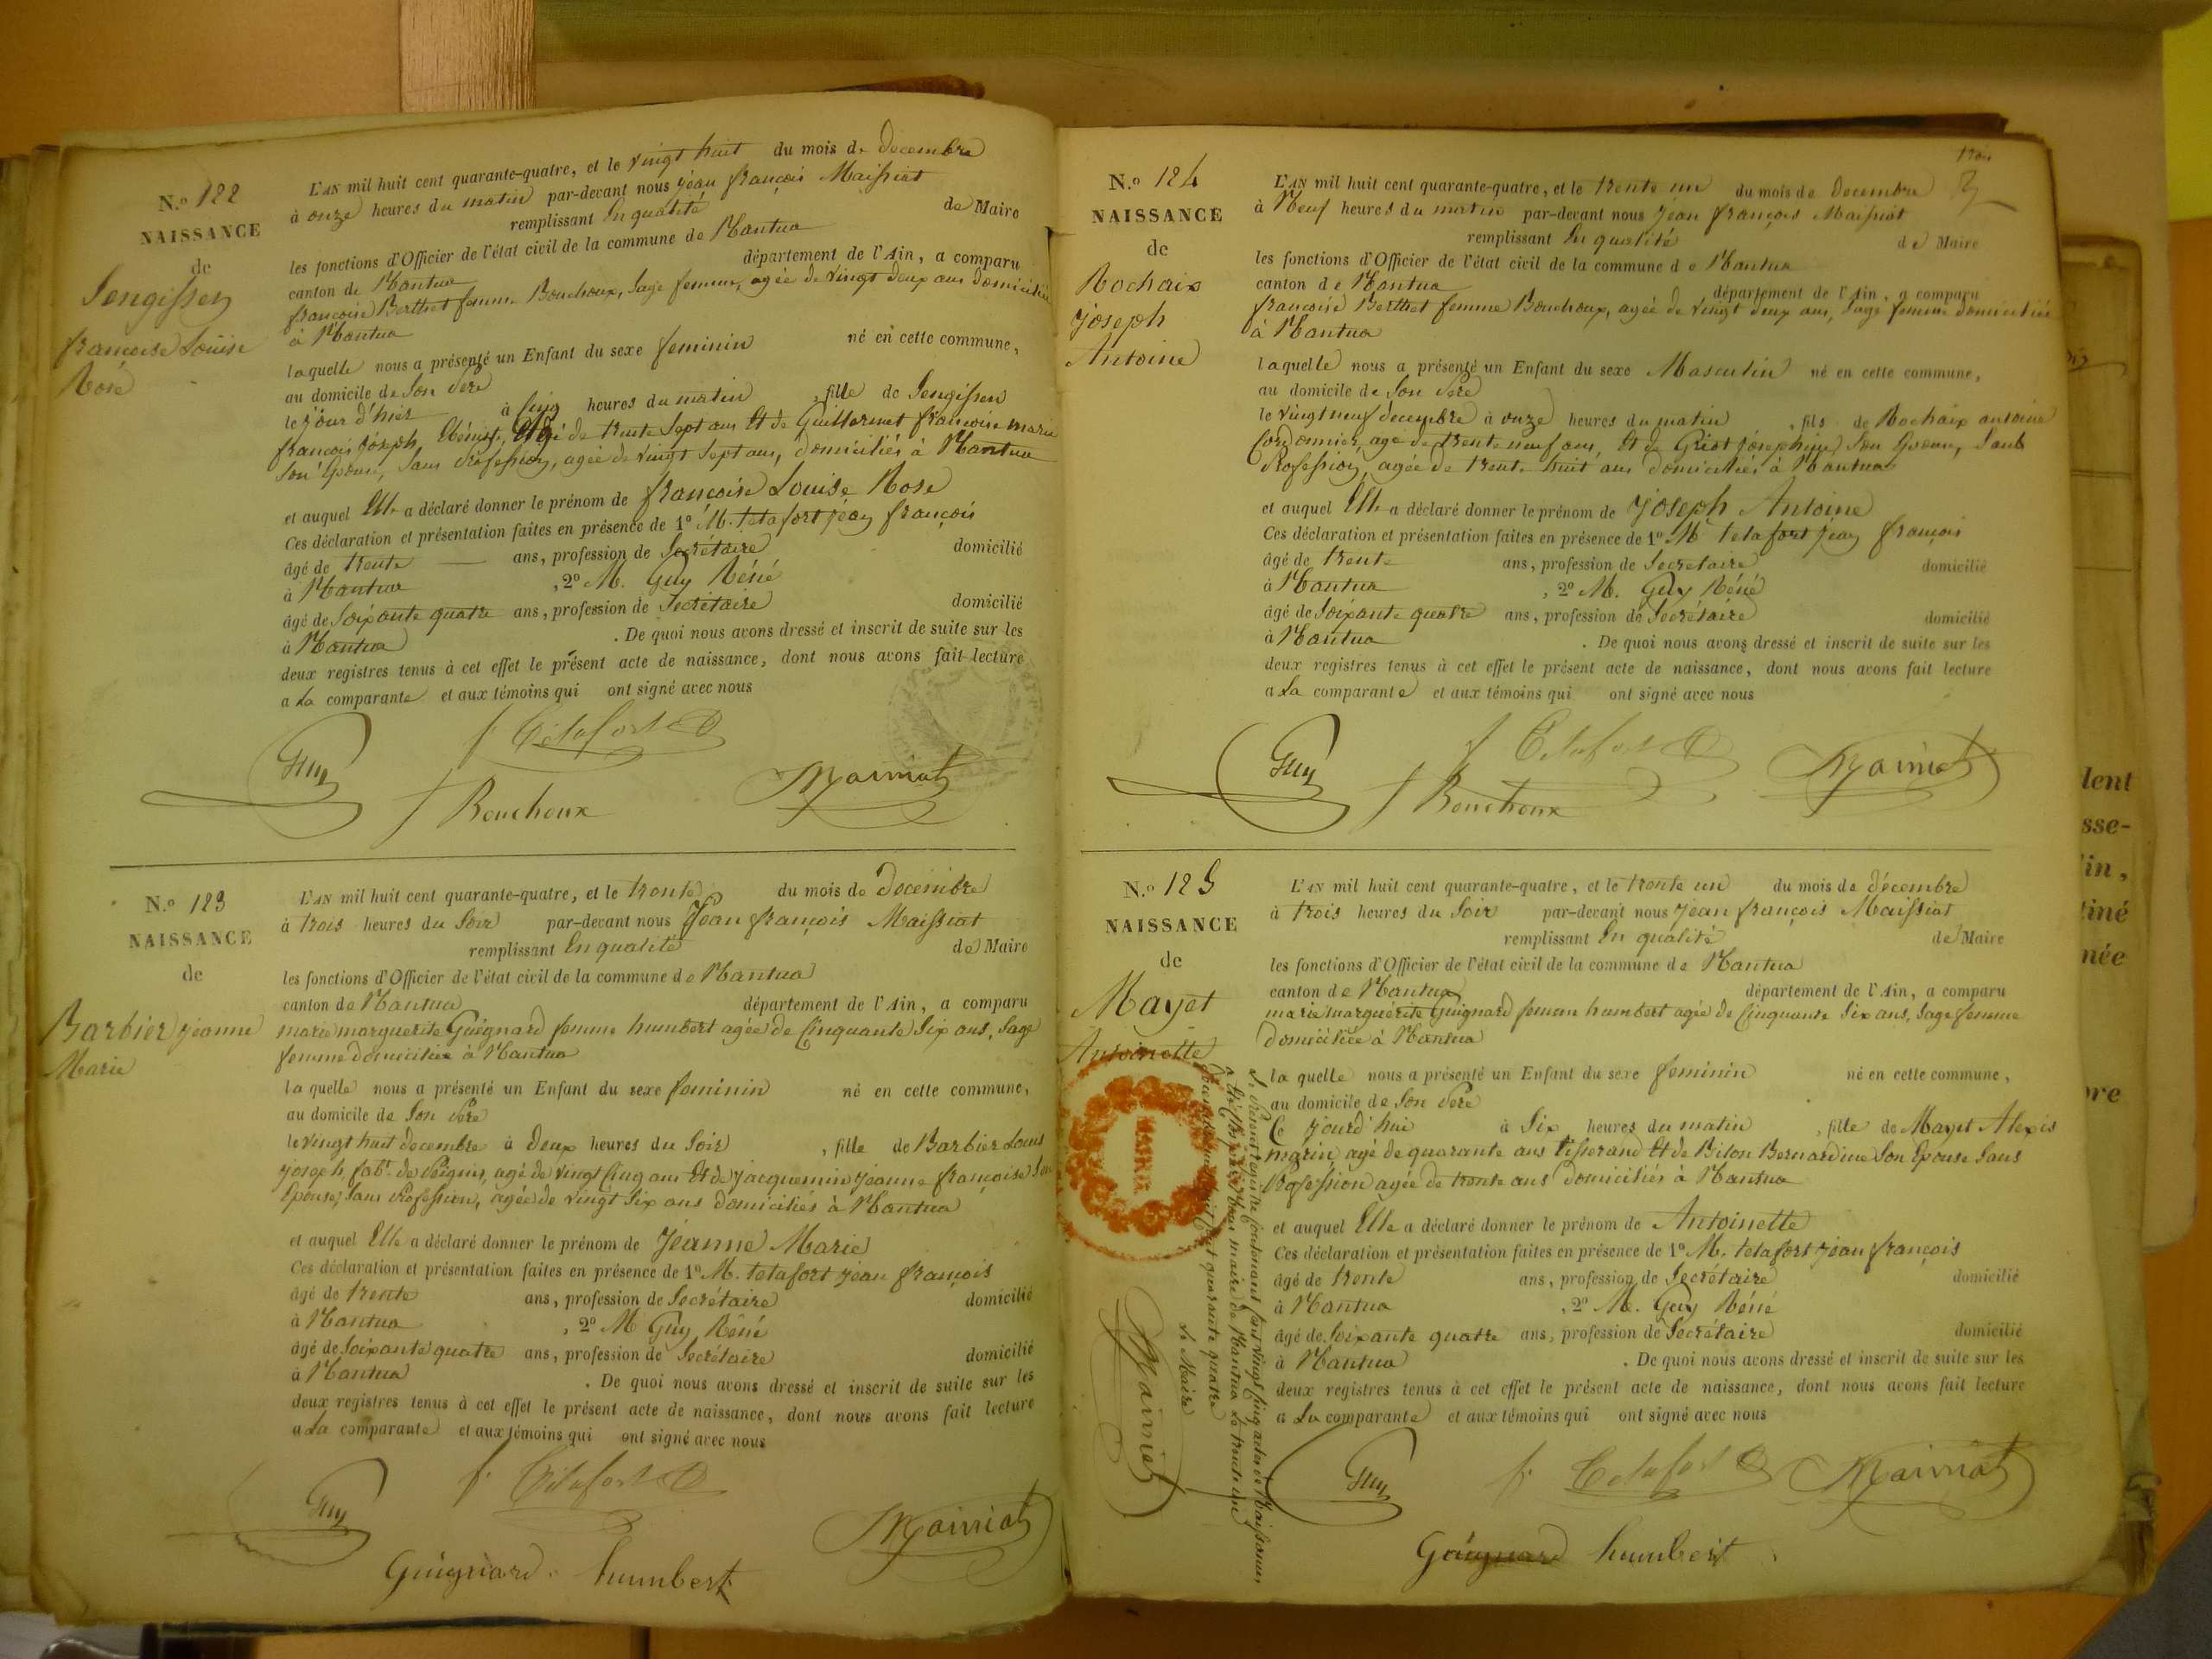 N.o 122
NAISSANCE
de
Sengissen
françoise Louise
Rose
L'AN mil huit cent quarante-quatre, et le vingt huit du mois de Decembre
à onze heures du matin par-devant nous jean françois Maissiat
remplissant En qualité de Maire
les fonctions d'Officier de l'état civil de la commune de Nantua
canton de Nantua département de l'Ain, a comparu
francoise Berthet femme Bouchoux, Sage femme, agée de vingt deux ans domiciliée
à Nantua
laquelle nous a présenté un Enfant du sexe feminin né en cette commune,
au domicile de Son Père
le jour d'hier à Cinq heures du matin, fille de Sengissen
françois joseph, Ebéniste, agé de trente Sept ans Et de Guillermet francoise marie
Son Epouse, Sans Profession, agée de vingt Sept ans, domiciliés à Nantua
et auquel Elle a déclaré donner le prénom de françoise Louise Rose
Ces déclaration et présentation faites en présence de 1o M. tetafort jean françois
âgé de trente — ans, profession de Secrétaire domicilié
à Nantua, 2o M. Guy Réné
âgé de Soixante quatre ans, profession de Secrétaire domicilié
à Nantua. De quoi nous avons dressé et inscrit de suite sur les
deux registres tenus à cet effet le présent acte de naissance, dont nous avons fait lecture
a La comparante et aux témoins qui ont signé avec nous
Guy f Tetafort
f Bouchoux Maissiat
N.o 123
NAISSANCE
de
Barbier jeanne
Marie
L'AN mil huit cent quarante-quatre, et le trente du mois de Decembre
à trois heures du Soir par-devant nous Jean françois Maissiat
remplissant En qualité de Maire
les fonctions d'Officier de l'état civil de la commune de Nantua
canton de Nantua département de l'Ain, a comparu
marie marguerite Guignard femme humbert agée de Cinquante Six ans, Sage
femme domiciliée à Nantua
la quelle nous a présenté un Enfant du sexe feminin né en cette commune,
au domicile de Son Père
le vingt huit decembre à deux heures du Soir, fille de Barbier Louis
joseph, fabt. de Peignes, agé de vingt Cinq ans Et de jacquemin jeanne françoise Son
Epouse, Sans Profession, agée de vingt Six ans domiciliés à Nantua
et auquel Elle a déclaré donner le prénom de Jeanne Marie
Ces déclaration et présentation faites en présence de 1o M. tetafort jean françois
âgé de trente ans, profession de Secrétaire domicilié
à Nantua, 2o M Guy Réné
âgé de Soixante quatre ans, profession de Secrétaire domicilié
à Nantua. De quoi nous avons dressé et inscrit de suite sur les
deux registres tenus à cet effet le présent acte de naissance, dont nous avons fait lecture
a La comparante et aux témoins qui ont signé avec nous
Guy f. Tetafort Maissiat
Guignard. humbert
trois
N.o 124
NAISSANCE
de
Rochaix
Joseph
Antoine
L'AN mil huit cent quarante-quatre, et le trente un du mois de decembre
à Neuf heures du matin par-devant nous jean françois Maissiat
remplissant En qualité de Maire
les fonctions d'Officier de l'état civil de la commune de Nantua
canton de Nantua département de l'Ain, a comparu
françoise Berthet femme Bouchoux, agée de vingt deux ans, Sage femme domiciliée
à Nantua
laquelle nous a présenté un Enfant du sexe Masculin né en cette commune,
au domicile de Son Père
le vingt neuf decembre à onze heures du matin, fils de Rochaix antoine
Cordonnier, agé de trente neuf ans, Et de Griot joséphine Son Epouse, Sans
Profession, agée de trente huit ans domiciliés à Nantua
et auquel Elle a déclaré donner le prénom de Joseph Antoine
Ces déclaration et présentation faites en présence de 1o M tetafort jean françois
âgé de trente ans, profession de Secretaire domicilié
à Nantua, 2o M. Guy Réné
âgé de Soixante quatre ans, profession de Secrétaire domicilié
à Nantua. De quoi nous avons dressé et inscrit de suite sur les
deux registres tenus à cet effet le présent acte de naissance, dont nous avons fait lecture
a La comparante et aux témoins qui ont signé avec nous
Guy f Tetafort Maissiat
f Bouchoux
N.o 125
NAISSANCE
de
Mayet
Antoinette
L'AN mil huit cent quarante-quatre, et le trente un du mois de décembre
à trois heures du Soir par-devant nous jean françois Maissiat
remplissant En qualité de Maire
les fonctions d'Officier de l'état civil de la commune de Nantua
canton de Nantua département de l'Ain, a comparu
marie marguérite Guignard femme humbert agée de Cinquante Six ans, Sage femme
domiciliée à Nantua
la quelle nous a présenté un Enfant du sexe feminin né en cette commune,
au domicile de Son Père
Ce jourd'hui à Six heures du matin, fille de Mayet Alexis
marin agé de quarante ans tisserand Et de Bilon Bernardine Son Epouse Sans
Profession agée de trente ans domiciliés à Nantua
et auquel Elle a déclaré donner le prénom de Antoinette
Ces déclaration et présentation faites en présence de 1o M. tetafort jean françois
âgé de trente ans, profession de Secrétaire domicilié
à Nantua, 2o M. Guy Réné
âgé de Soixante quatre ans, profession de Secrétaire domicilié
à Nantua. De quoi nous avons dressé et inscrit de suite sur les
deux registres tenus à cet effet le présent acte de naissance, dont nous avons fait lecture
a La comparante et aux témoins qui ont signé avec nous
Guy f. Tetafort Maissiat
Guignard humbert
Le Présent registre contenant Cent vingt Cinq actes de Naissance,
a été Clos par Nous maire de Nantua Le trente un
quarante quatre
Le Maire
Maissiat
MAIRIE
lent
sse-
in,
tiné
née